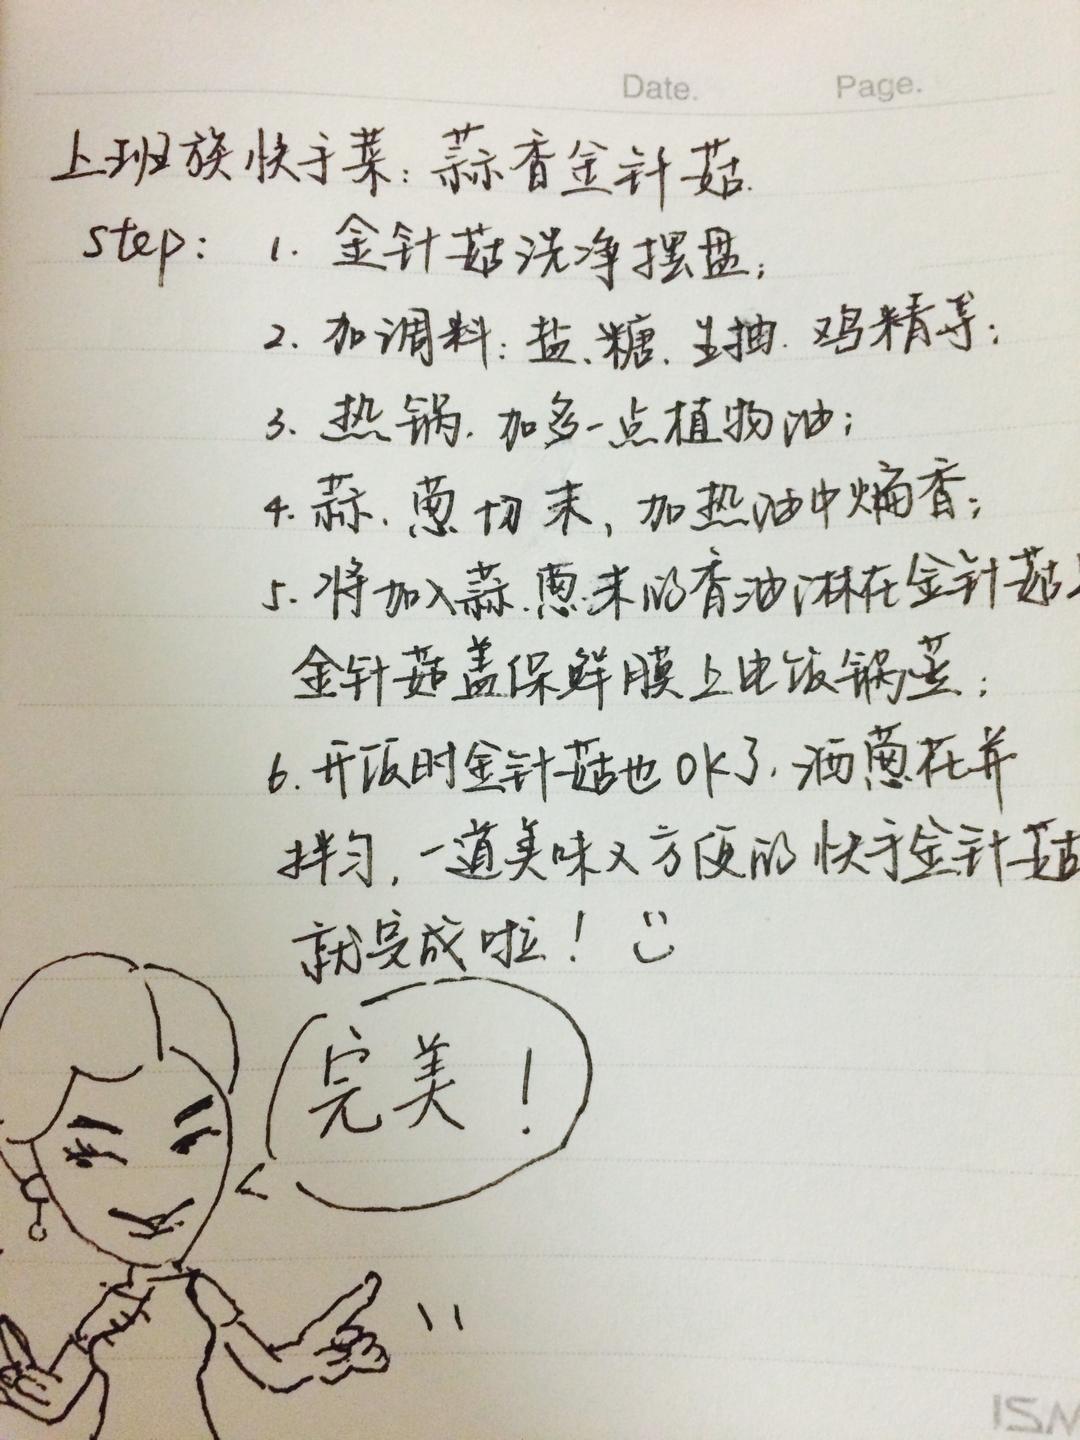 Date. Page.
上班族快手菜：蒜香金针菇.
step: 1. 金针菇洗净摆盘；
2. 加调料：盐、糖、生抽、鸡精等；
3. 热锅，加多一点植物油；
4. 蒜、葱切末，加热油中煸香；
5. 将加入蒜、葱末的香油淋在金针菇上
金针菇盖保鲜膜上电饭锅蒸；
6. 开饭时金针菇也OK了，洒葱花并
拌匀，一道美味又方便的快手金针菇
就完成啦！
完美！